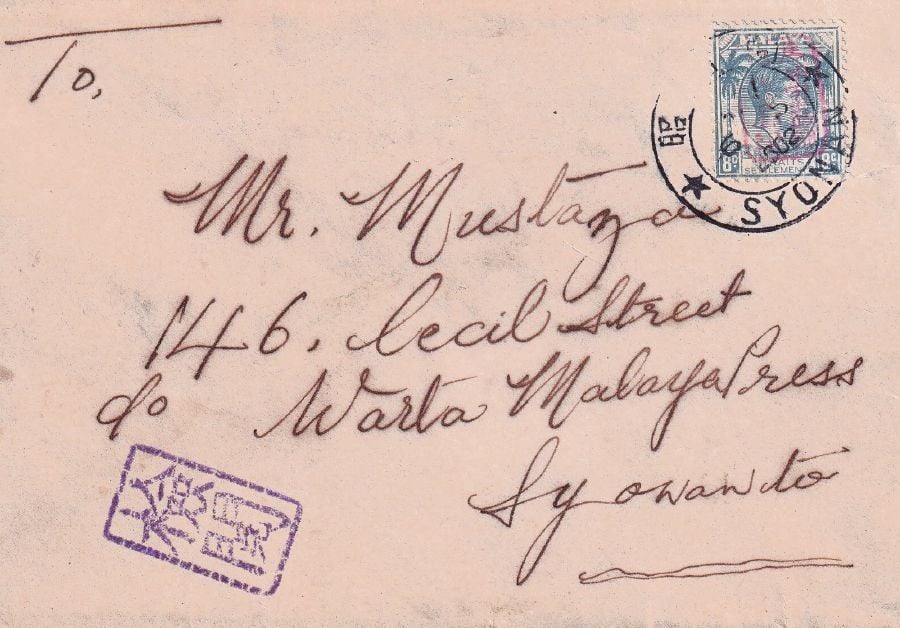 To,
MALAYA
8c
STRAITS
SETTLEMENTS
8c
昭
2602
SYONAN
Mr. Mustaza
146, Cecil Street
c/o Warta Malaya Press
Syowanto